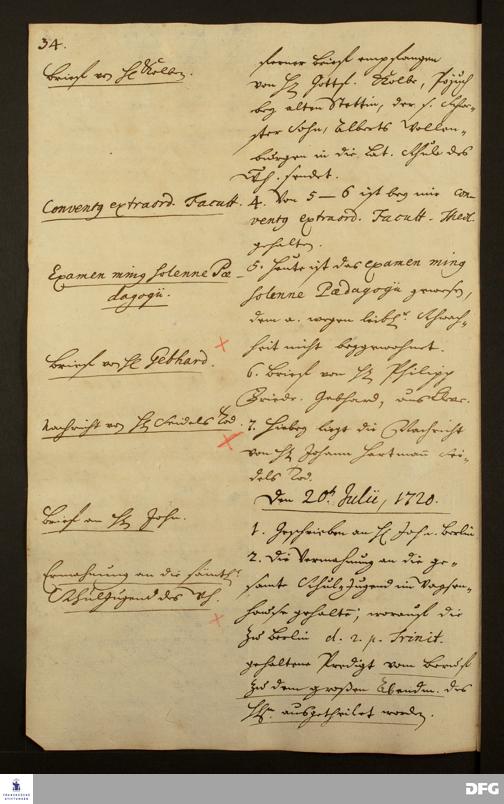 34.
Brief von H. Kolben.
ferner Brief empfangen
von H. Gottf. Kolbe,
bey alten Stettin, der s. Schwe-
ster Sohn, Alberts Wollen-
burgen in die Lat. Schule des
Wh. sendet.
Conventg extraord. Facult.
4. Von 5 – 6 ist bey mir con-
ventg extraord. Facult. Theol.
gehalten.
Examen ming solenne Pæ-
dagogii.
5. Heute ist das examen ming
solenne Pædagogii gewesen,
dem a. wegen leibl. Schwach-
heit nicht beygewohnet.
Brief von H. Gebhard.
6. Brief von H. Philipp
Friedr. Gebhard, aus
Nachricht von H. Seidels Tod.
7. Hiebey liegt die Nachricht
von H. Johann Hartmann Sei-
dels Tod.
Den 20t. Julii, 1720.
Brief an H. Joh.
1. Geschrieben an H. Joh. Berlin
Ermahnung an die sämtl.
Schuljugend des Wh.
2. Die Vermahnung an die ge-
samte Schul-Jugend im Waysen-
hause gehalten, worauf die
zu Berlin d. 2. p. Trinit.
gehaltene Predigt vom Beruf
zu dem großen Abendm. des
HErrn ausgetheilet worden.
FRANCKESCHE STIFTUNGEN
DFG